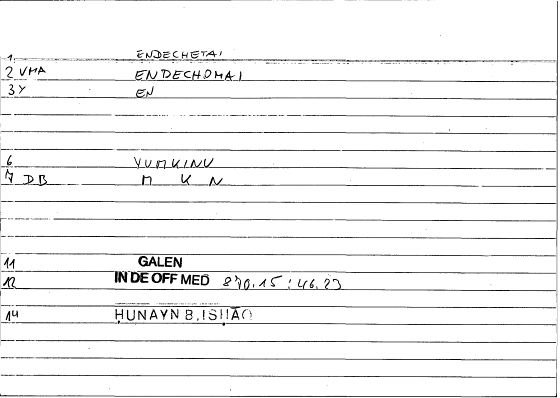 1 ENDECHETAI
2 VMA ENDECHOMAI
3 Y EN
6 YUMKINU
7 DB M K N
11 GALEN
12 IN DE OFF MED 870.15 : 46.23
14 ḤUNAYN B. ISḤĀQ